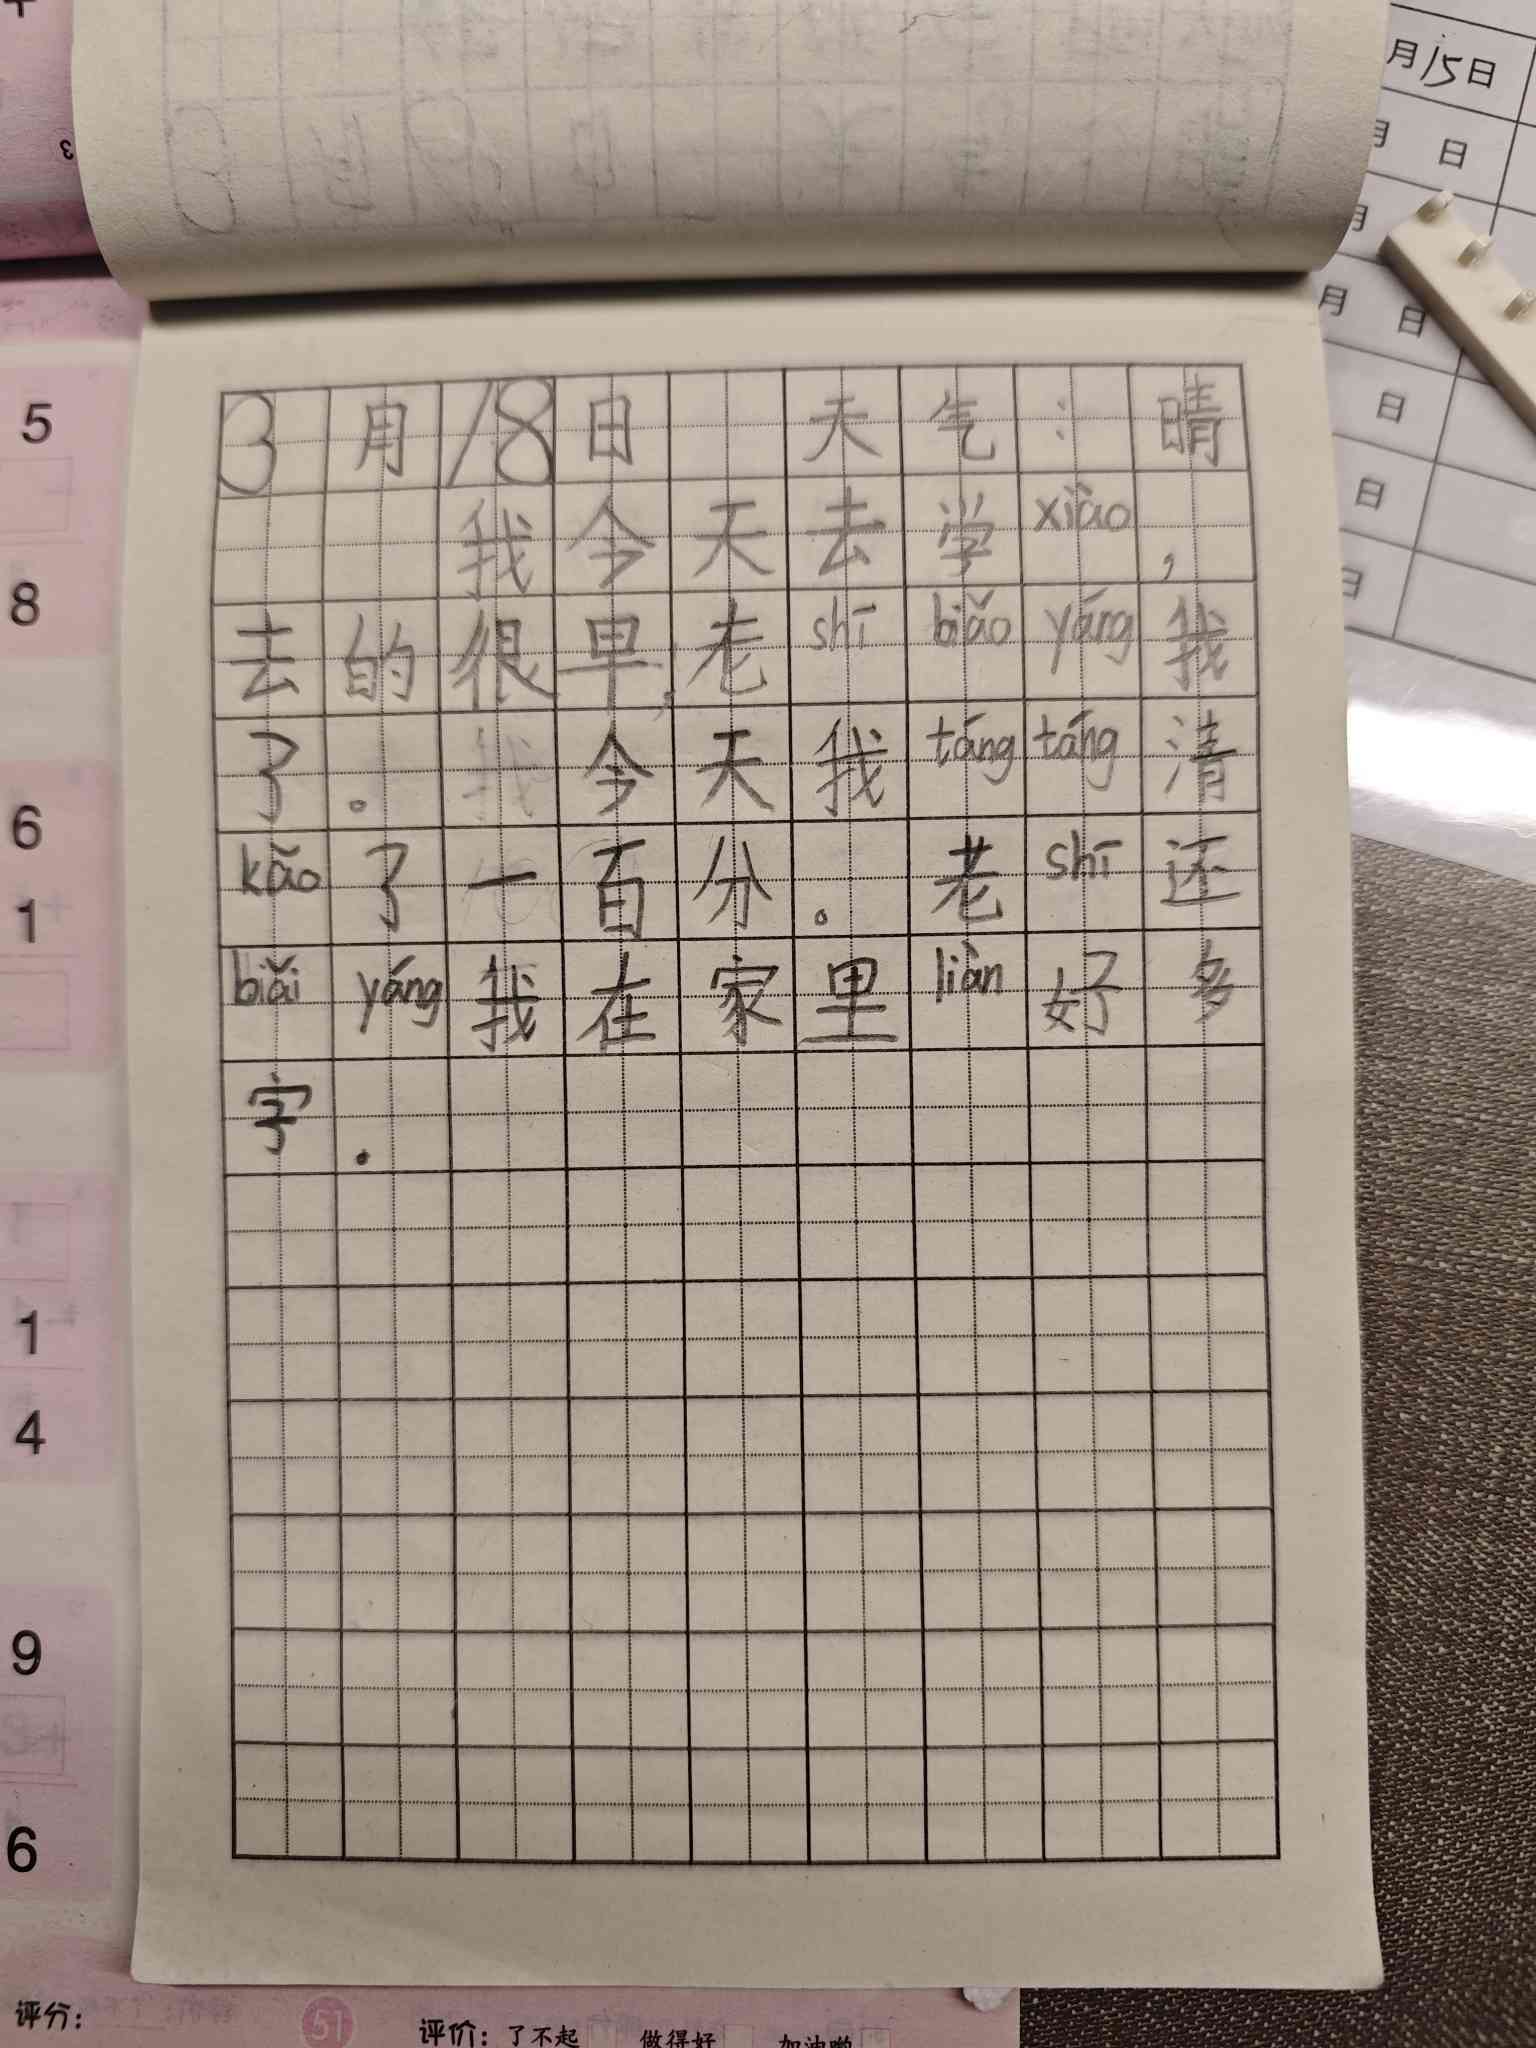 月15日
月 日
月
月 日
日
日
日
3月18日 天气:晴
我今天去学xiào,
去的很早,老shī biǎo yáng我
了。我今天我táng táng清
kǎo了一百分。老shī还
biǎi yáng我在家里liàn好多
字.
5
8
6
1
1
4
9
6
评分:
51
评价:了不起 做得好 加油哟